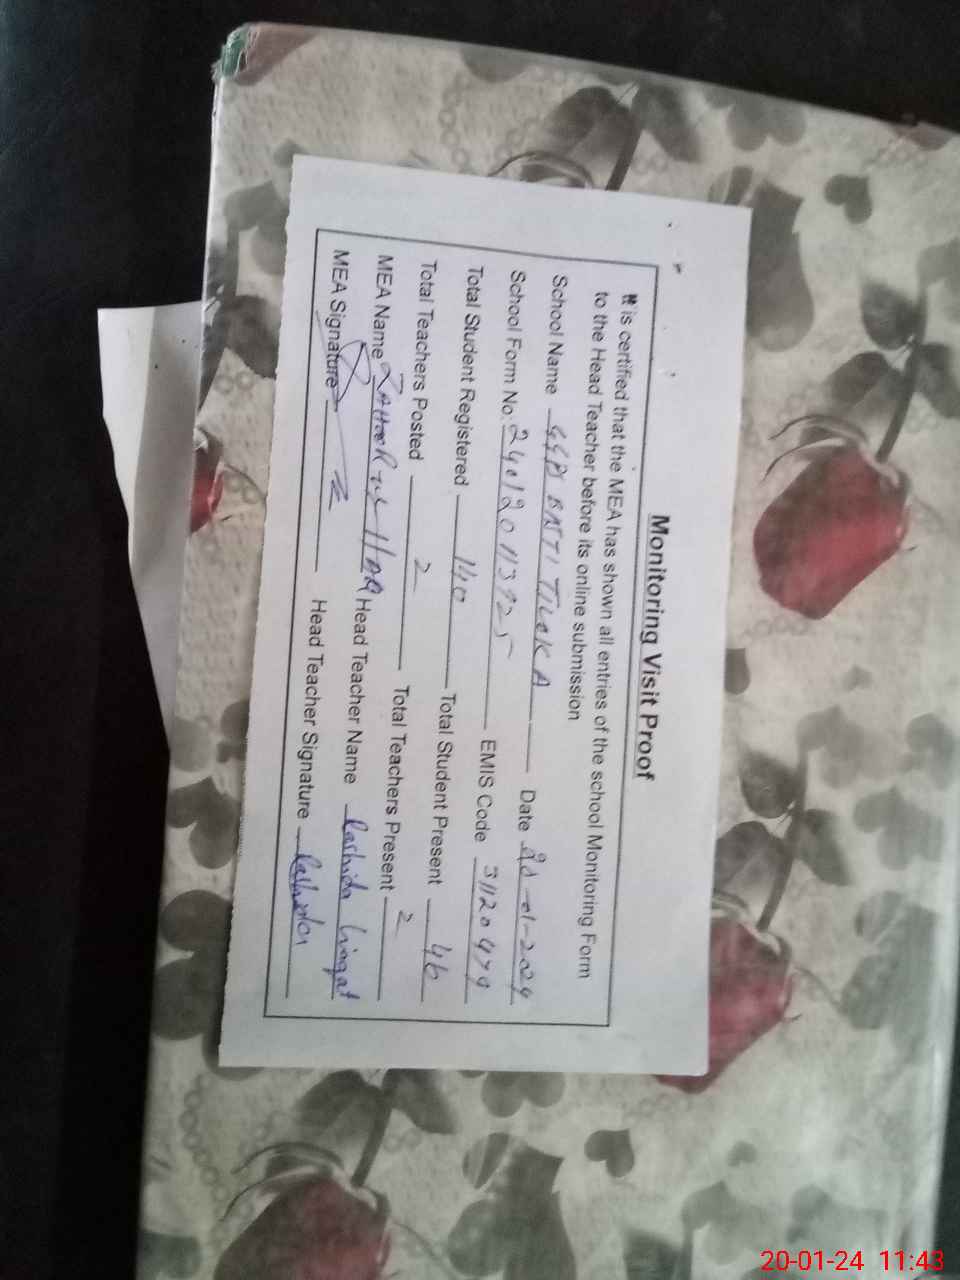 Monitoring Visit Proof
It is certified that the MEA has shown all entries of the school Monitoring Form
to the Head Teacher before its online submission
School Name BASTI TILOKA Date 20-01-2024
School Form No: EMIS Code 31120479
Total Student Registered 140 Total Student Present 46
Total Teachers Posted 2 Total Teachers Present 2
MEA Name ZAHOOR-UL-HAQ Head Teacher Name Rashida
MEA Signature Head Teacher Signature Rashida
20-01-24 11:43